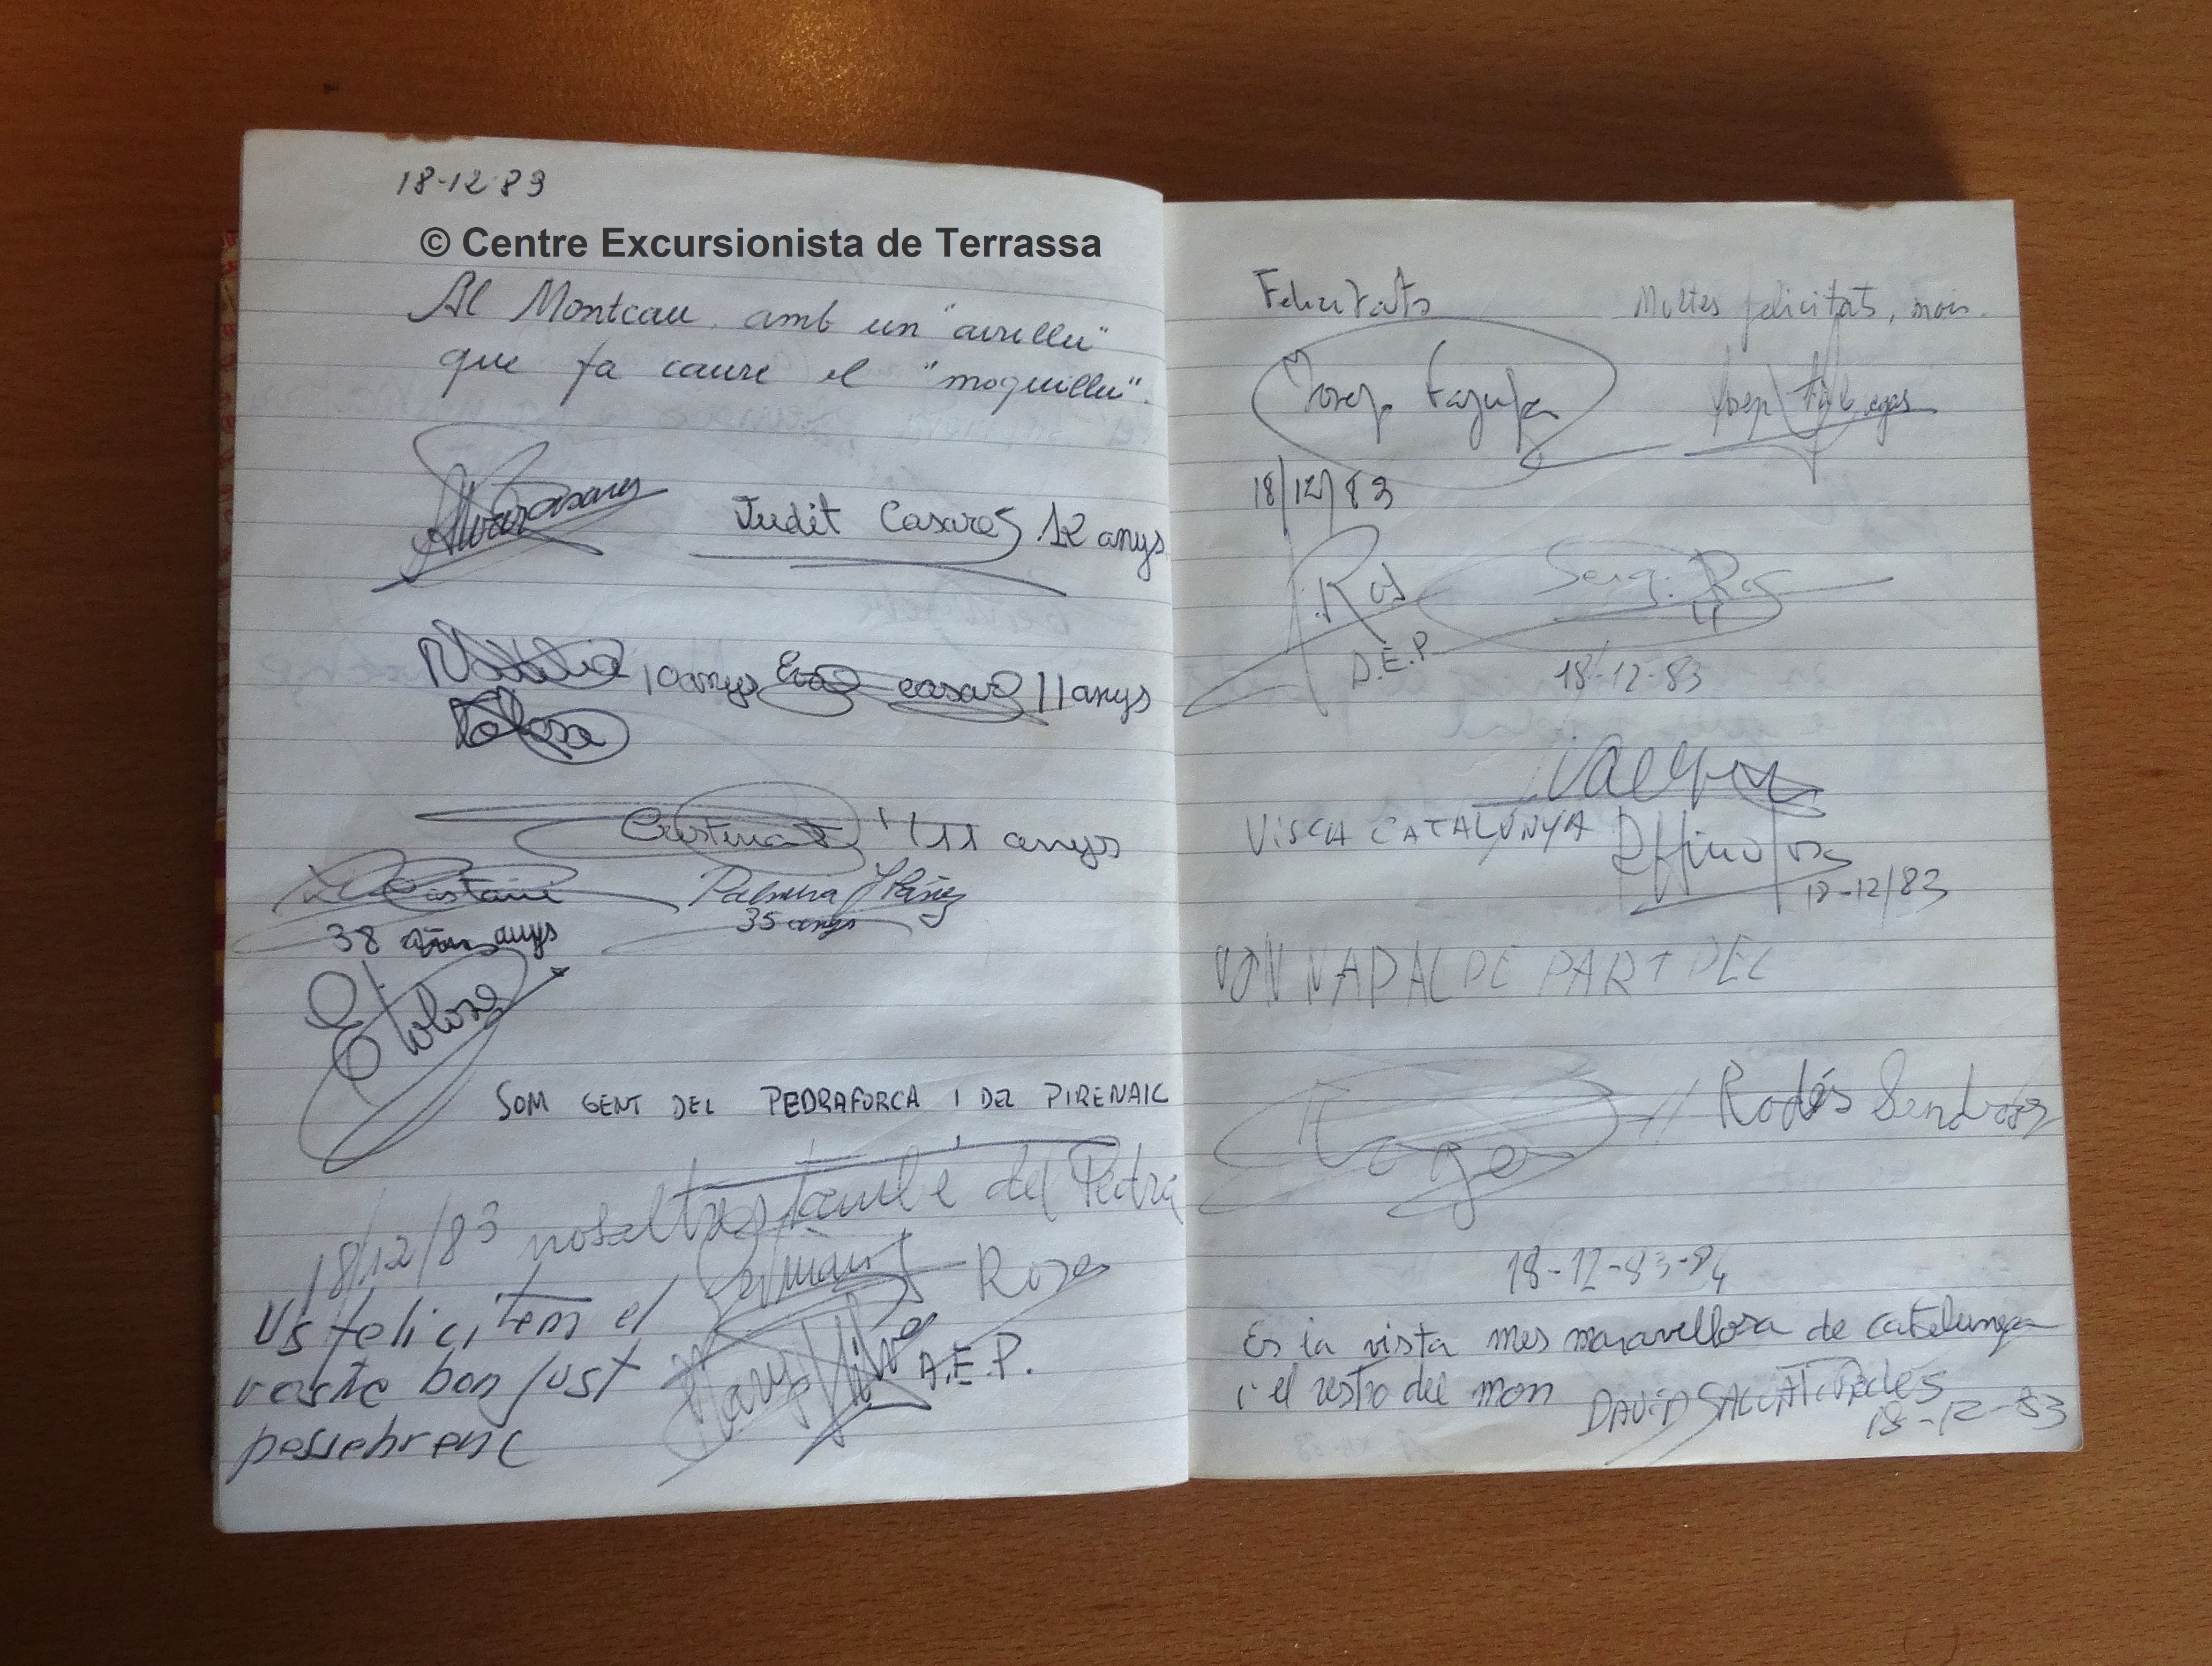 18-12-83
© Centre Excursionista de Terrassa
Al Montcau amb un "airellu"
que fa caure el "moquillu".
Judit Casares 12 anys
10 anys Eva casa 11 anys
Cristina 11 anys
Castañé Palmira Ibáñez
38 anys 35 anys
E Tolosa
SOM GENT DEL PEDRAFORCA I DEL PIRENAIC
18/12/83 nosaltres també del Pedra
Germán Roser
Us felicitem el
vostre bon gust
pessebrenc
A.E.P.
Felicitats Moltes felicitats, nois.
Josep
18/12/83
Ros Sergi Ros
11
A.E.P. 18-12-83
VISCA CATALUNYA
18-12/83
VON NADAL DE PART DEL
Roger Rodés Sendrós
18-12-83-84
Es la vista mes maravellosa de catalunya
i el resto del mon DAVID SALVAT Rodés
18-12-83